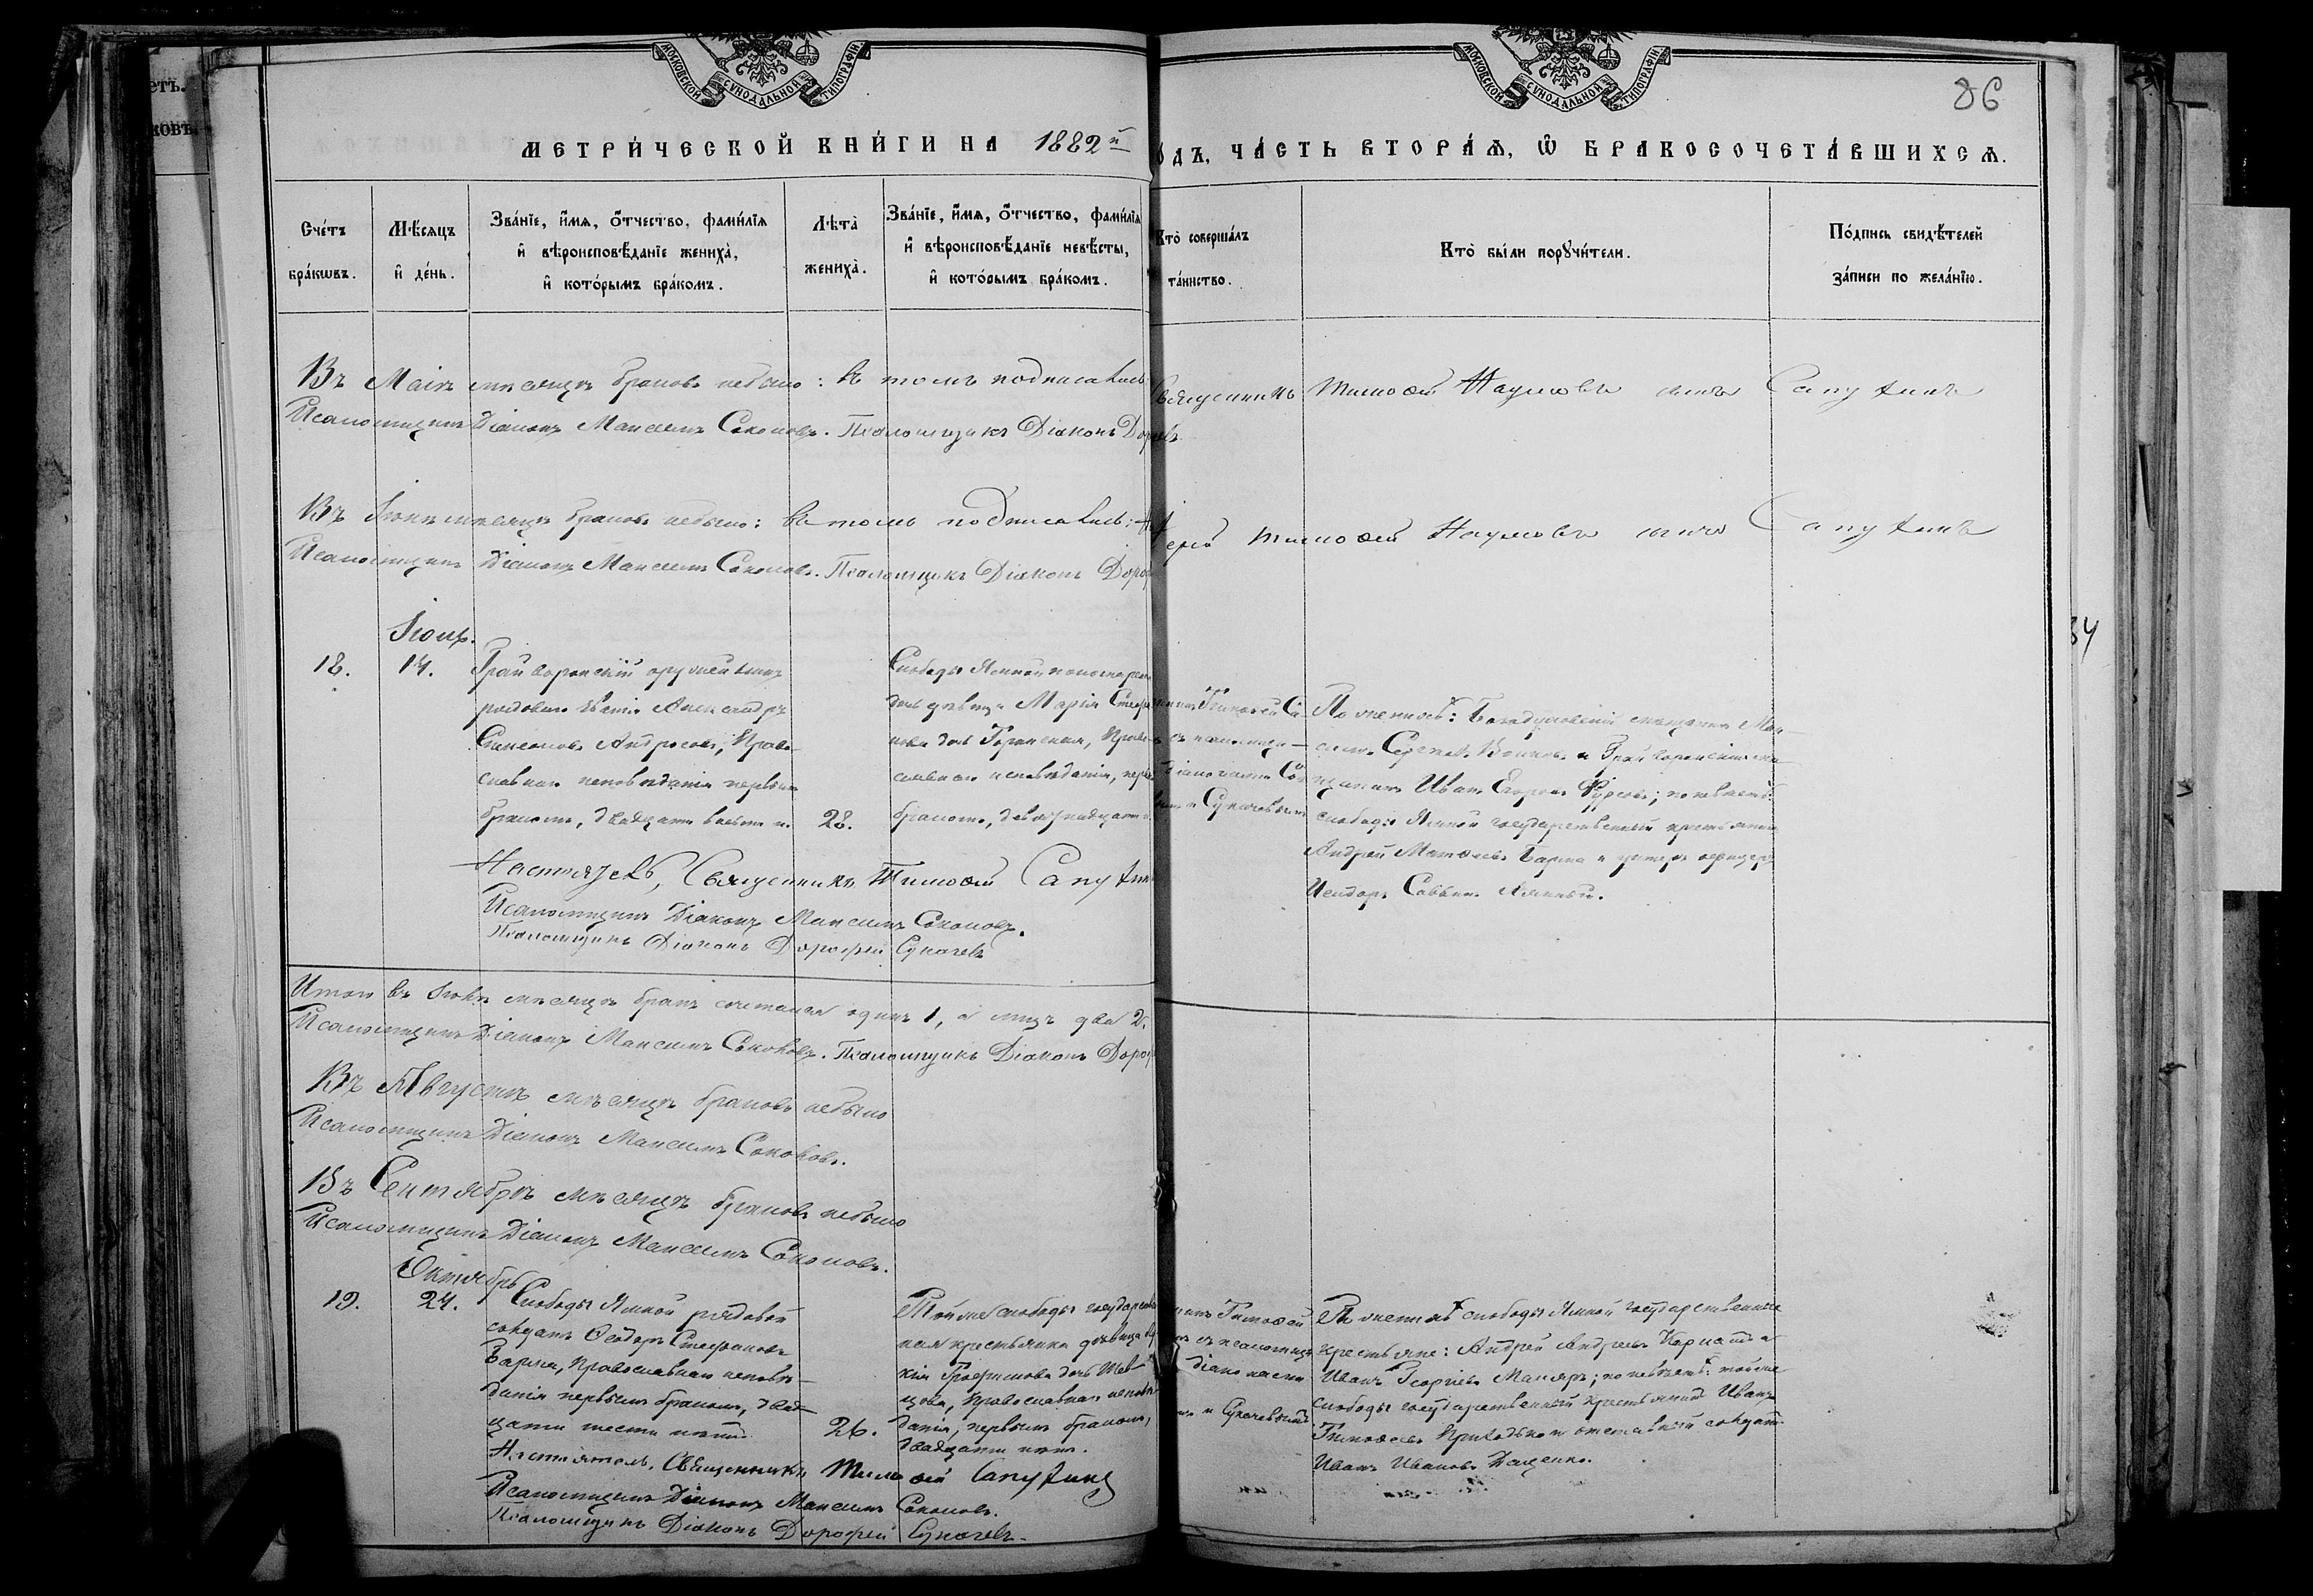 етъ.
ковъ
МОСКОВСКОЙ СѴНОДАЛЬНОЙ ТИПОГРАФІИ
МОСКОВСКОЙ СѴНОДАЛЬНОЙ ТИПОГРАФІИ
86
МЕТРИ́ЧЕСКОЙ КНИ́ГИ НА 1882 й
О́ДЪ, ЧА́СТЬ ВТОРА́Ѧ, Ѡ҆ БРАКОСОЧЕТА́ВШИХСѦ.
Сче́тъ
бра́кѡвъ.
Мѣ́сѧцъ
и҆ де́нь.
Зва́нїе, и҆́мѧ, ѻ҆́тчество, фами́лїѧ
и҆ вѣроисповѣ́данїе жениха̀,
и҆ кото́рымъ бра́комъ.
Лѣта̀
жениха̀.
Зва́нїе, и҆́мѧ, ѻ҆́тчество, фами́лїѧ
и҆ вѣроисповѣ́данїе невѣ́сты,
и҆ кото́рымъ бра́комъ.
Кто̀ соверша́лъ
та́инство.
Кто̀ бы́ли порꙋчи́тели.
По́дпись свидѣ́телей
за́писи по жела́нїю.
Въ Маіѣ мѣсяцѣ браковъ небыло: въ томъ подписались: Священникъ Тимоѳей Наумовъ сынъ Сапухинъ
Псаломщикъ Діаконъ Максимъ Соколовъ. Псаломщикъ Діаконъ Дор
Въ Іюнѣ мѣсяцѣ браковъ небыло: въ томъ подписались: Іерей Тимоѳей Наумовъ сынъ Сапухинъ
Псаломщикъ Діаконъ Максимъ Соколовъ. Псаломщикъ Діаконъ Доро
Іюль.
18. 14.
Грайворонскій
рядоваго званія Александръ
Симеоновъ Андросовъ, Право-
славнаго исповѣданія первымъ
бракомъ, двадцати восьми л.
28.
Слободы Ямной
дочь дѣвица Марія Стефа
нова дочь Право
славнаго исповѣданія, перв
бракомъ, девятнадцати
Тимоѳей Са
съ псаломщи-
Діаконами Со
и Сукачевымъ
По женихѣ: Богодуховскій мѣщанинъ Мак-
симъ Сергѣевъ и Грайворонскій мѣ
щанинъ Иванъ Егоровъ Фурсовъ; по невѣстѣ:
слободы Ямной государственный крестьянинъ
Андрей Матѳеевъ Барма и унтеръ офицеръ
Исидоръ Саввинъ
Настоятель, Священникъ Тимоѳей Сапухин
Псаломщикъ Діаконъ Максимъ Соколовъ.
Псаломщикъ Діаконъ Дорофей Сукачевъ
34
Итого въ Іюлѣ мѣсяцѣ бракъ сочетался одинъ 1, а лицъ два 2.
Псаломщикъ Діаконъ Максимъ Соколовъ. Псаломщикъ Діаконъ Дороф
Въ Августѣ мѣсяцѣ браковъ небыло
Псаломщикъ Діаконъ Максимъ Соколовъ.
Въ Сентябрѣ мѣсяцѣ браковъ небыло
Псаломщикъ Діаконъ Максимъ Соколовъ.
Октябрь
19. 24.
Слободы Ямной рядовой
солдатъ Ѳеодоръ Стефановъ
Барма, Православнаго исповѣ-
данія первымъ бракомъ, двад-
цати шести лѣтъ.
26.
Той же слободы государствен
ная крестьянка дѣвица
кія Трофимова дочь Шев-
цова, Православнаго исповѣ
данія, первымъ бракомъ,
двадцати лѣтъ.
Тимоѳей
съ псаломщи
діаконами
и Сукачевымъ
По женихѣ слободы Ямной государственные
крестьяне: Андрей Андреевъ и
Иванъ Георгіевъ Маляръ; по невѣстѣ: той же
слободы государственный крестьянинъ Иванъ
Тимоѳеевъ Приходько и отставной солдатъ
Иванъ Ивановъ Даценко.
Настоятель, Священникъ Тимоѳей Сапухинъ
Псаломщикъ Діаконъ Максимъ Соколовъ.
Псаломщикъ Діаконъ Дорофей Сукачевъ.